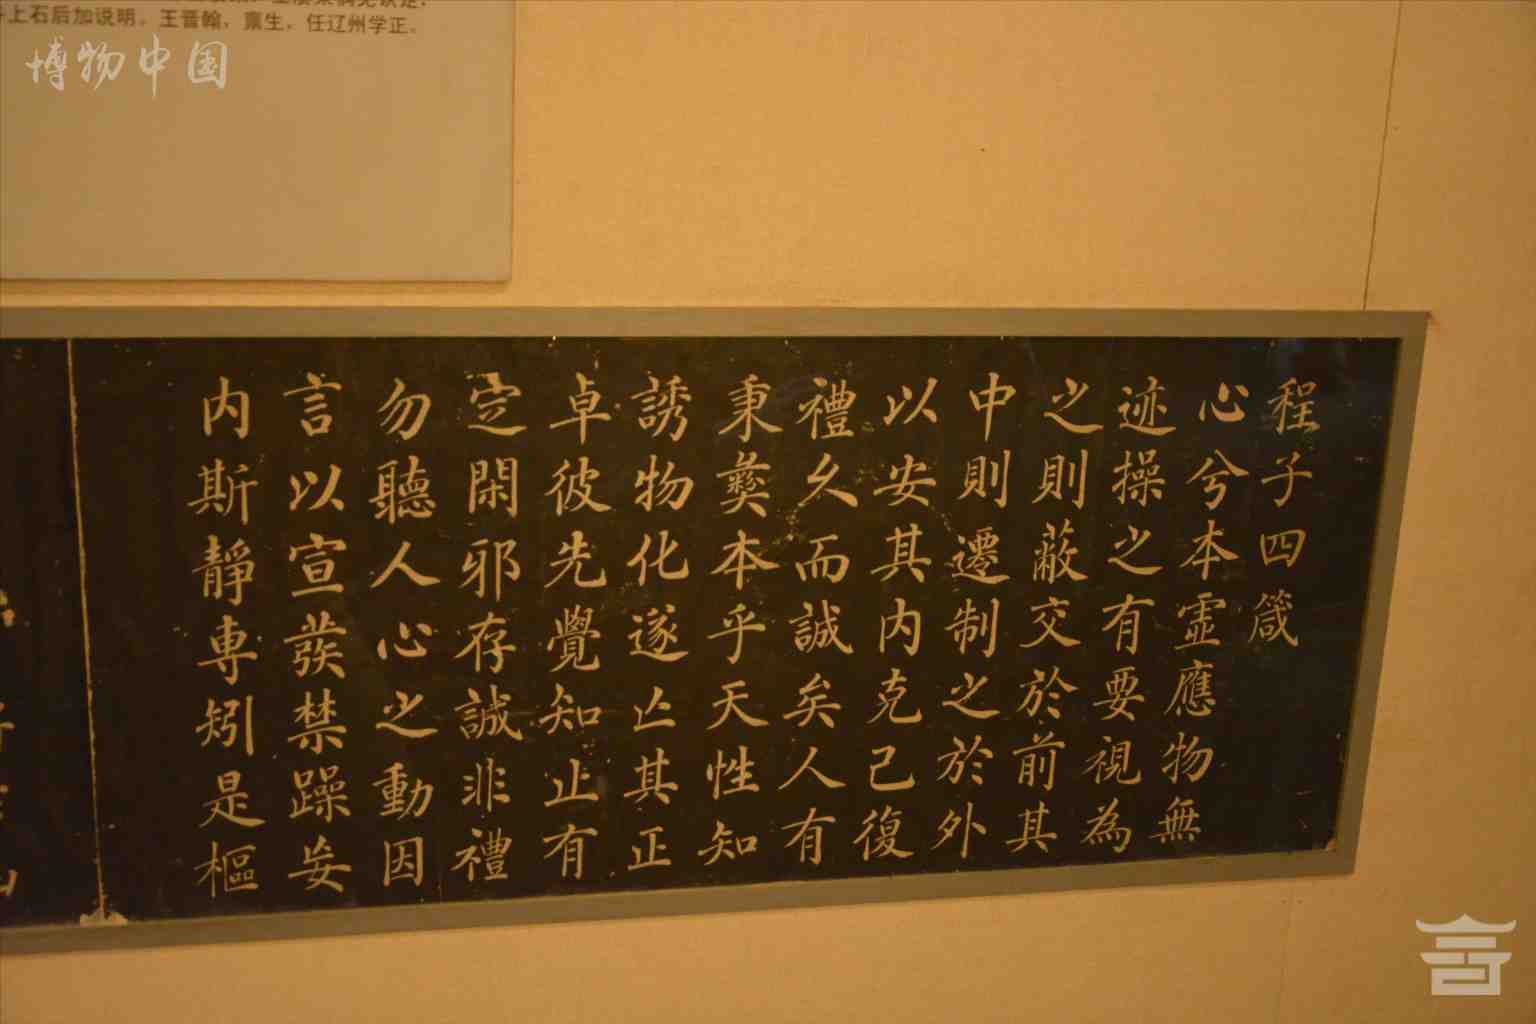 上石后加说明。王晋翰,禀生,任辽州学正。
博物中国
程子四箴
心兮本虛應物無
迹操之有要視為
之則蔽交於前其
中則遷制之於外
以安其内克己復
禮久而誠矣人有
秉彝本乎天性知
誘物化遂亾其正
卓彼先覺知止有
定閑邪存誠非禮
勿聽人心之動因
言以宣發禁躁妄
内斯靜専矧是樞